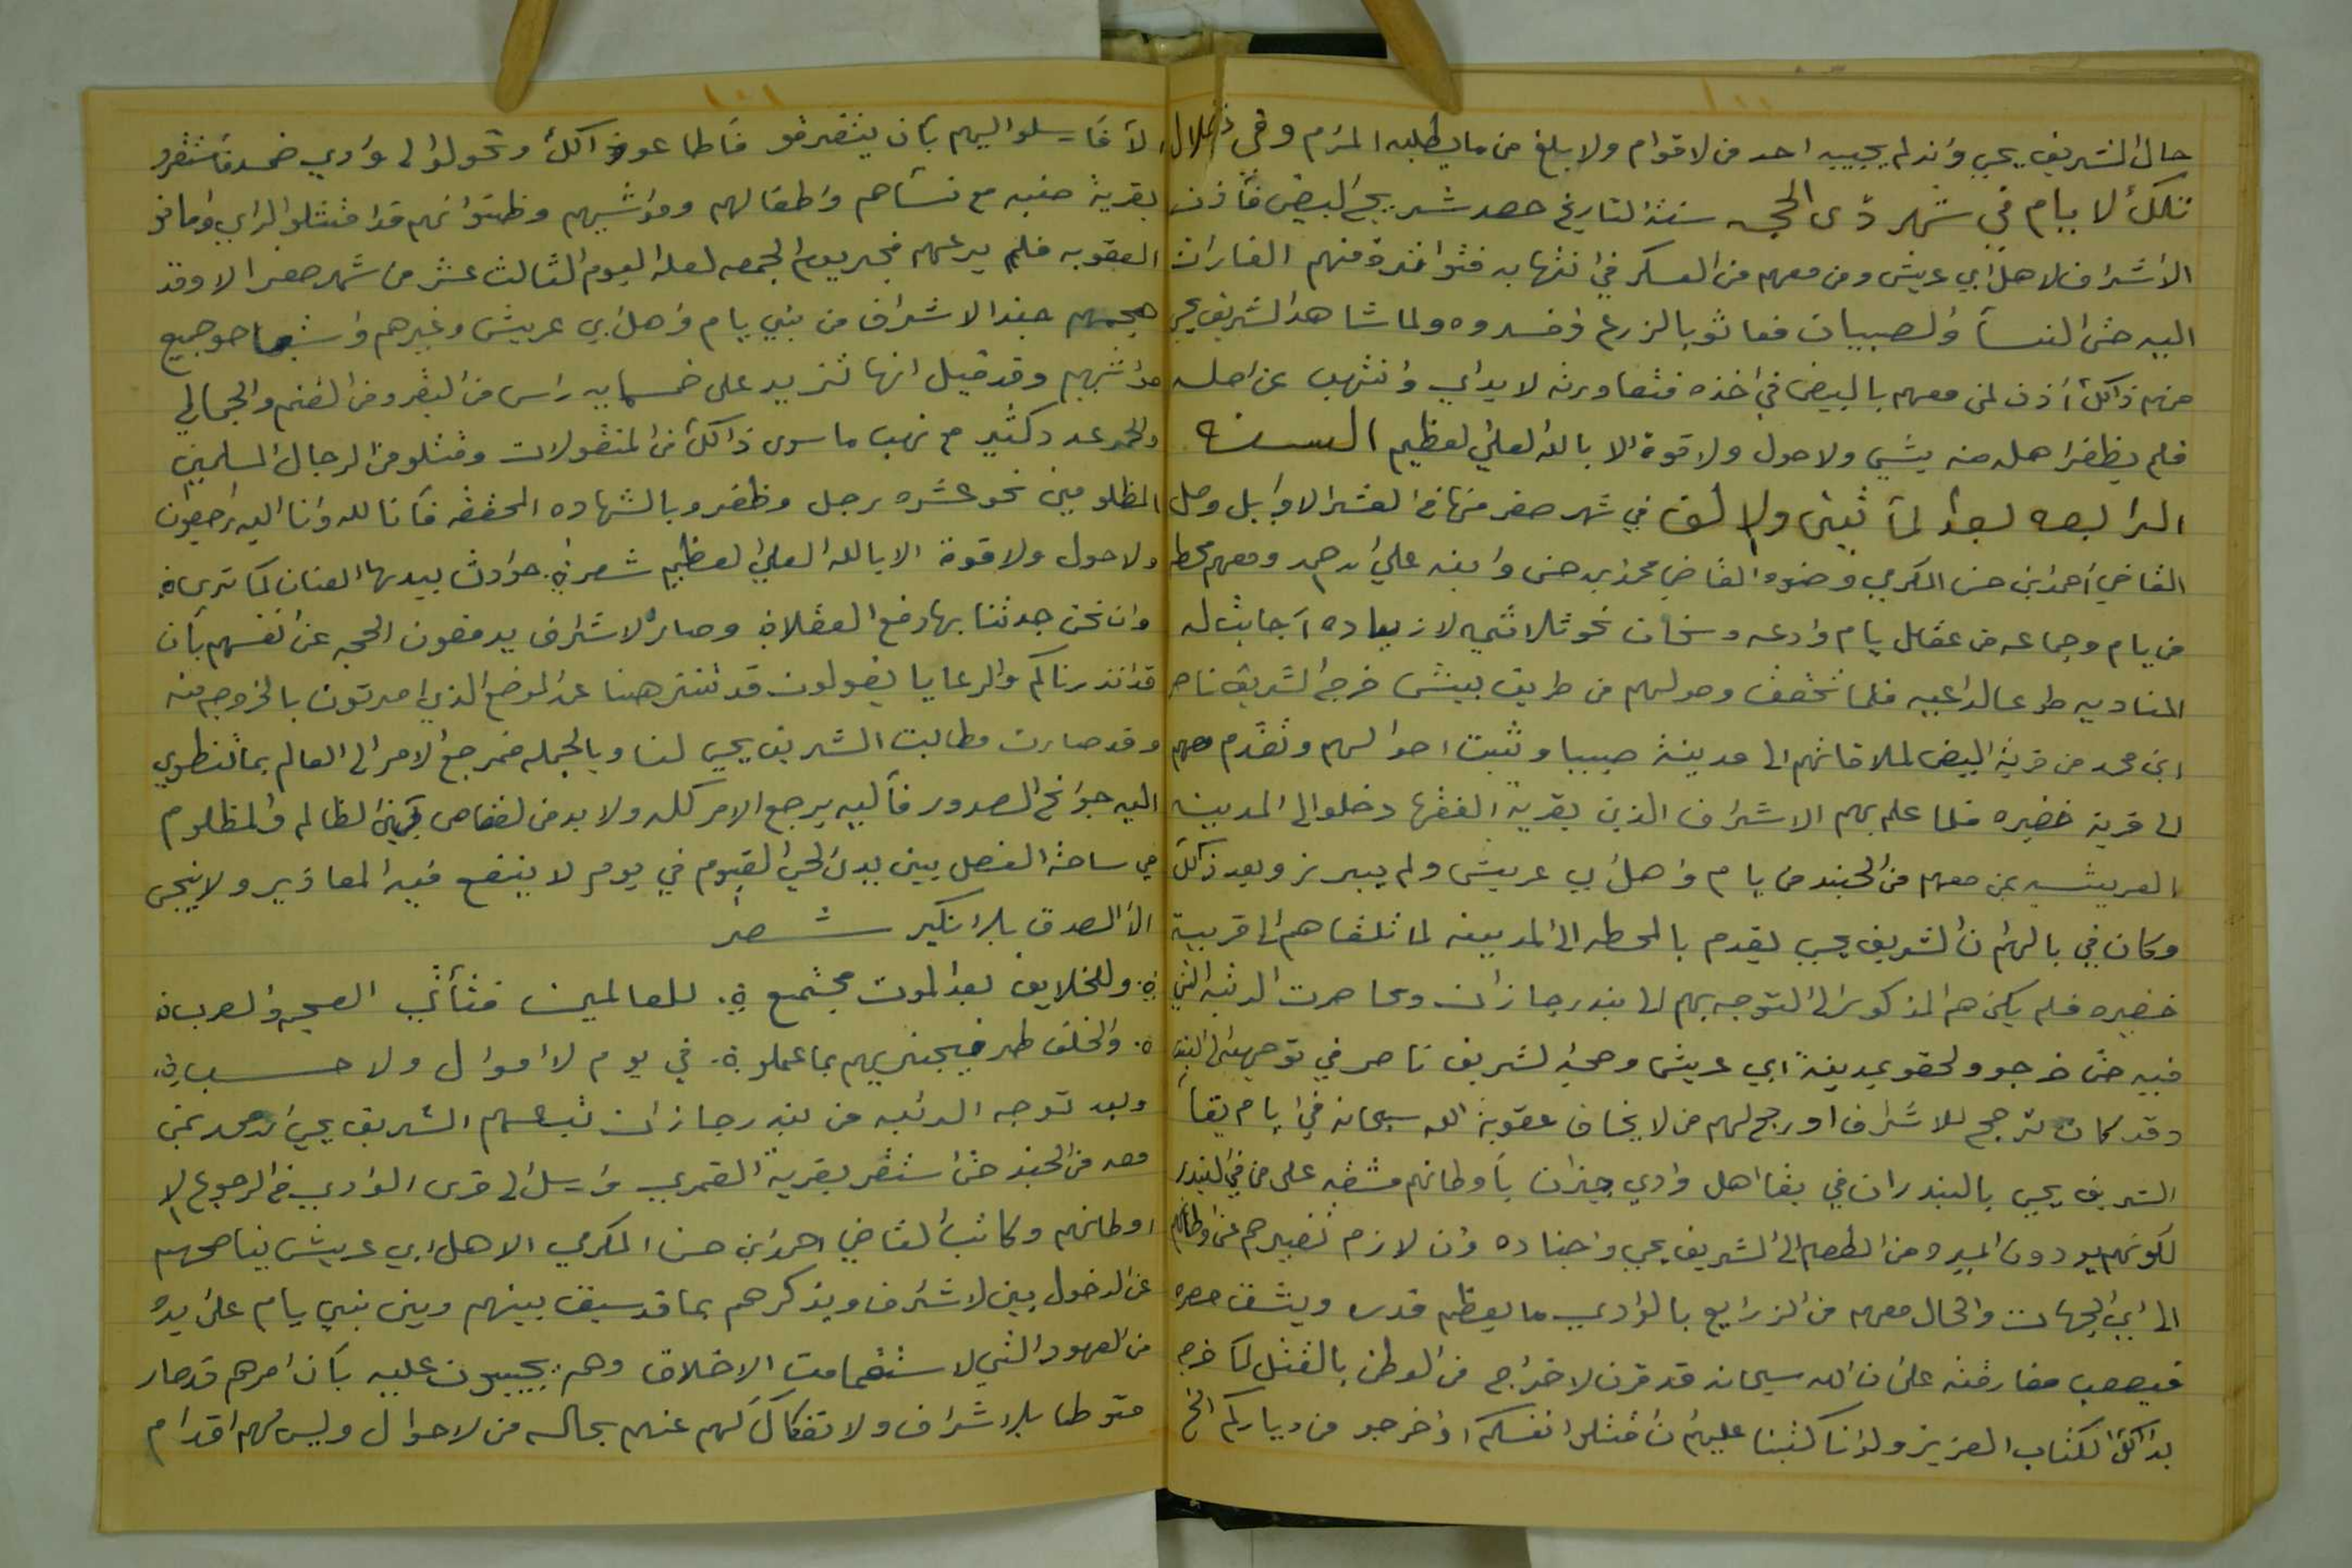 ١٠٠
حال الشريف يحيى وانه لم يجيبه احد من لاقوام ولا بلغ من ما يطلبه المرام وفي خلال
تلك لا يام في شهر ذى الحجه سنة التاريخ حصد شريح البيض فأذن
الاشراف لاهل ابي عريش ومن معهم من العسكر في انتهابه فتواترة منهم الغارات
اليه حتى النسأ والصبيان فعاثو بالزرع وفسدوه ولما شاهد الشريف يحيى
منهم ذالك أذن لمن معهم بالبيض في اخذه فتعاورته لا يداي وانتهب عن اصله
فلم يظفر اهله منه بشي ولا حول ولا قوة الا بالله العلي لعظيم السنه
الرابعه بعد لمأتين ولا لف في شهر صفر منها في العشر الاوايل وصل
القاضي احمد ابن حسن المكرمي وصنوه القاضي محمد بن حسن وابنه علي ابن احمد ومعهم محطه
من يام وجماعه من عقال يام وادعه وسنحان نحو ثلاثميه لا زياده اجابت له
المناديه طوعا لداعيه فلما تحقق وصولهم من طريق بيش خرج الشريف ناصر
ابن محمد من قرية البيض لملاقاتهم الى مدينة صبيا وتثبت احوالهم وتقدم معهم
الى قرية خضيره فلما علم بهم الاشراف الذين بقرية الفقها دخلوا الى المدينه
العريشيه بمن معهم من الجند من يام واهل ابي عريش ولم يبرز وبعد ذالك
وكان في بالهم ان الشريف يحيى يقدم بالمحطه الى المدينه لما تلقاهم الى قريية
خضيره فلم يكن هم المذكور الى التوجه بهم الى بندر جازان ومحاصرت الرتبه التي
فيه حتى خرجو ولحقو بمدينة ابي عريش وصحبه لشريف ناصر في توجههم الى البندر
وقد كان ترجح للاشراف او رجح لهم من لا يخاف عقوبة الله سبحانه في ايام بقأ
الشريف يحيى بالبندر ان في بقا اهل وادي جيزان بأوطانهم مشقه على من في البندر
لكونهم يودون الميره من الطعام الى الشريف يحيى واجناده وان لازم تغييرهم عن اوطانهم
الى اي الجهات والحال معهم من الزرايع بالوادي ما يعظم قدره ويشق حصره
فيصعب مفارقته على ان الله سبحانه قد قرن لاخراج من الوطن بالقتل لما خرج
بذالك الكتاب العزيز ولو انا كتبنا عليهم ان اقتلوا انفسكم او اخرجو من دياركم الخ
١٠١
الا فارسلوا اليهم بأن يتفرقو فأطاعو ذالك وتحولوا الى وادي ضمد فأستقرو
بقرية صنبه مع نسأهم واطفالهم ومواشيهم وظنوا نهم قد امتثلوا الراي وامانو
العقوبه فلم يرعهم فجر يوم الجمعه لعله اليوم الثالث عشر من شهر صفر الا وقد
هجمهم جند الاشراف من بني يام واهل ابي عريش وغيرهم واستباحو جميع
مواشيهم وقد قيل انها تزيد على خمسمايه راس من البقر ومن الغنم والجمال
والحمر عدد كثير مع نهب ما سوى ذالك من المنقولات وقتلو من الرجال المسلمين
المظلومين نحو عشره رجل وظفرو بالشهاده المحققه فأنا لله وانا اليه راجعون
ولا حول ولا قوة الا بالله العلي لعظيم شعر حوادث بيدها العنان كما ترى
وان نحن حدثنا بها دفع العقلا وصار لاشراف يدفعون الحجه عن انفسهم بأن
قد انذرناكم والرعايا يقولون قد تنزهنا عن الموضع الذي امرتون بالخروج منه
وقد صارت مطالبت الشريف يحيى لنا وبالجمله فمرجع الامر الى العالم بما تنطوي
اليه جوانح الصدور فأليه يرجع الامر كله ولا بد من لقصاص بين الظالم والمظلوم
في ساحة الفصل بين يدى الحي القيوم في يوم لا ينفع فيه المعاذير ولا ينجى
الا الصدق بلا نكير شعر
وللخلايق بعد الموت مجتمع للعالمين فتأتي العجم والعرب
والخلق طر فيجزيهم بما عملو في يوم لا اموال ولا حسب
وبعد توجه الرتبه من بندر جازان تبعهم الشريف يحيى ابن محمد بمن
معه من الجند حتى استقر بقرية القمري وارسل الى قرى الوادي في الرجوع الى
اوطانهم وكاتب القاضي احمد ابن حسن المكرمي الاهل ابي عريش يناصحهم
عن الدخول بين لاشراف ويذكرهم بما قد سبق بينهم وبين بني يام على يده
من العهود التي لا ستقامت الاخلاق وهم يجيبون عليه بأن امرهم قد صار
متوطا بلاشراف ولا تفكاك لهم عنهم بحاله من لاحوال وليس لهم اقدام